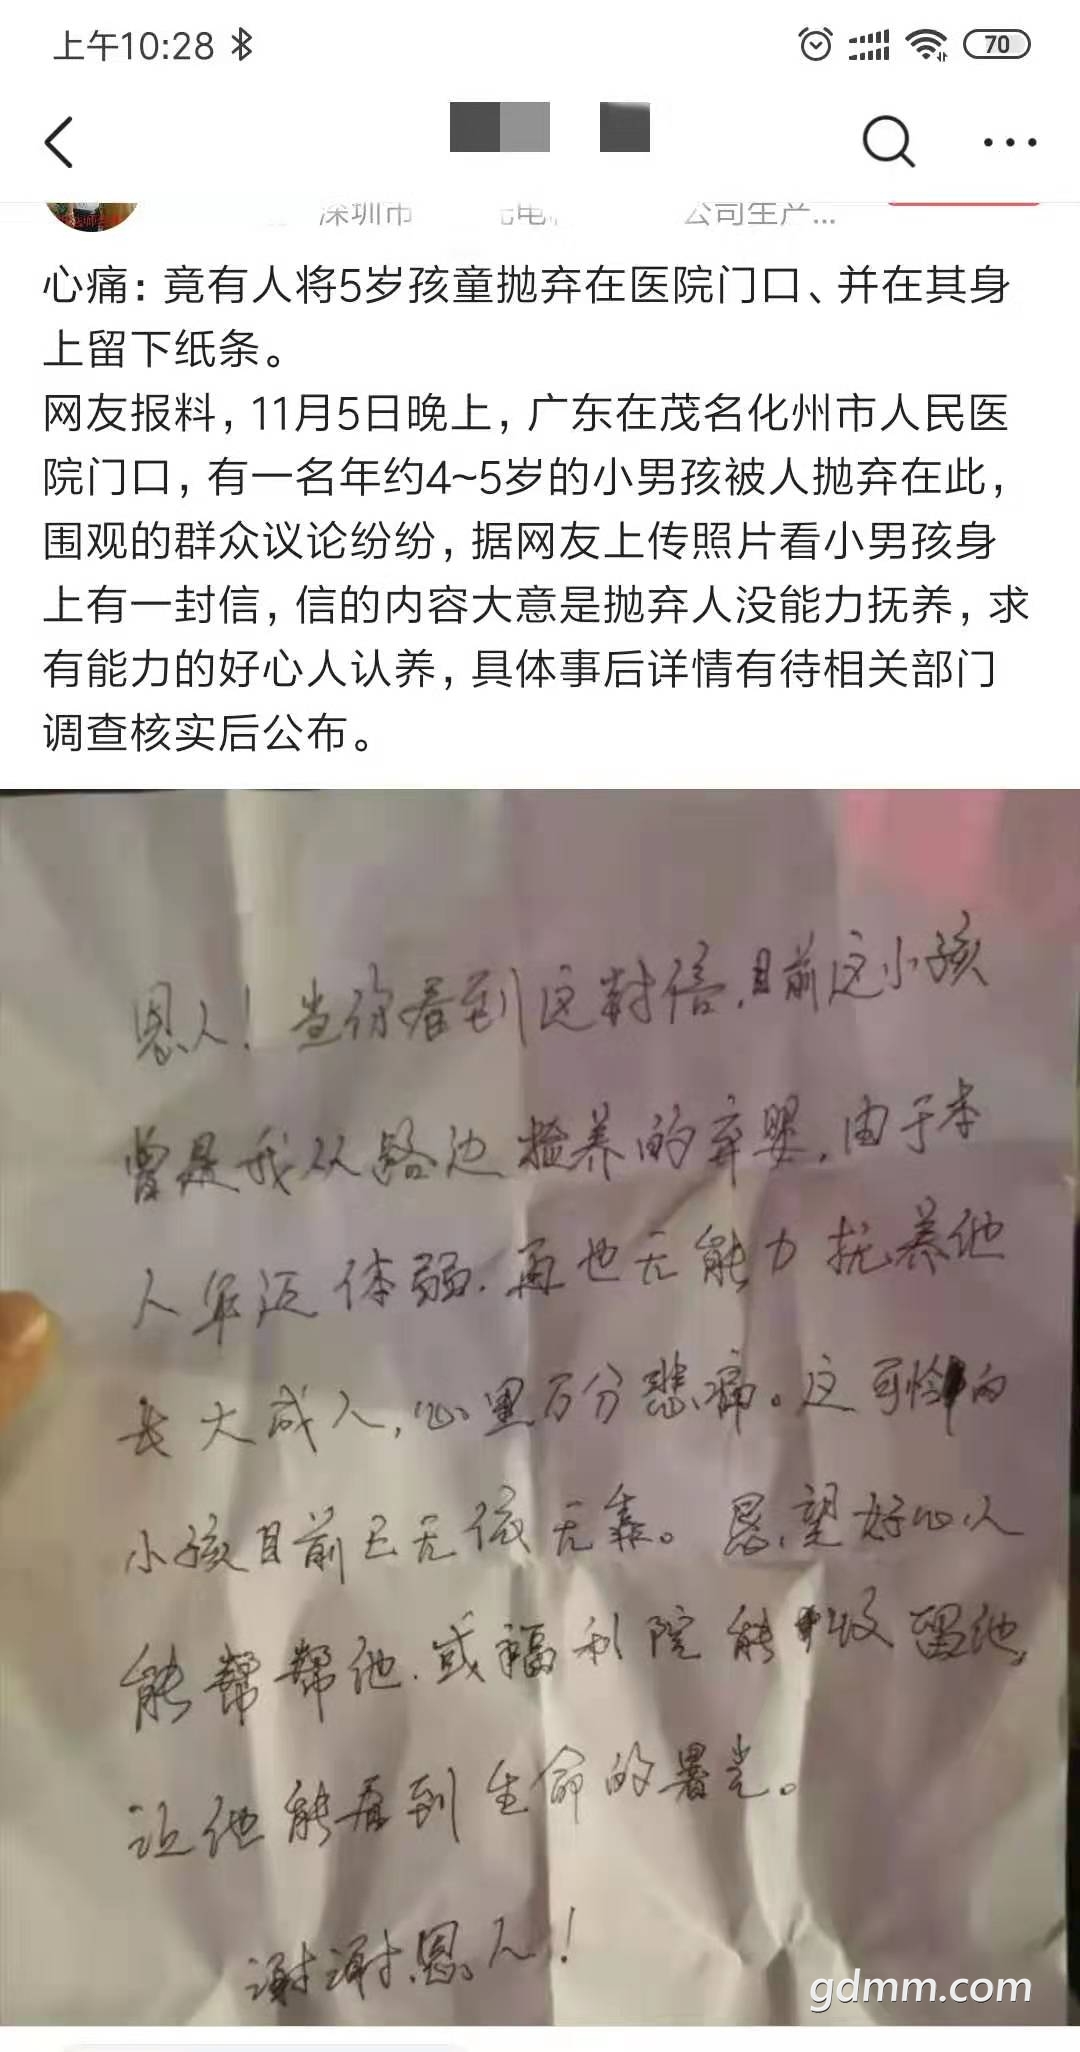 上午10:28
70
深圳市 电 公司生产...
心痛：竟有人将5岁孩童抛弃在医院门口、并在其身
上留下纸条。
网友报料，11月5日晚上，广东在茂名化州市人民医
院门口，有一名年约4~5岁的小男孩被人抛弃在此，
围观的群众议论纷纷，据网友上传照片看小男孩身
上有一封信，信的内容大意是抛弃人没能力抚养，求
有能力的好心人认养，具体事后详情有待相关部门
调查核实后公布。
恩人！当你看到这封信，目前这小孩
曾是我从路边捡养的弃婴，由于本
人年迈体弱，再也无能力抚养他
长大成人，心里万分悲痛。这可怜的
小孩目前已无依无靠。恳望好心人
能帮帮他，或福利院能收留他，
让他能看到生命的曙光。
谢谢恩人！
gdmm.com